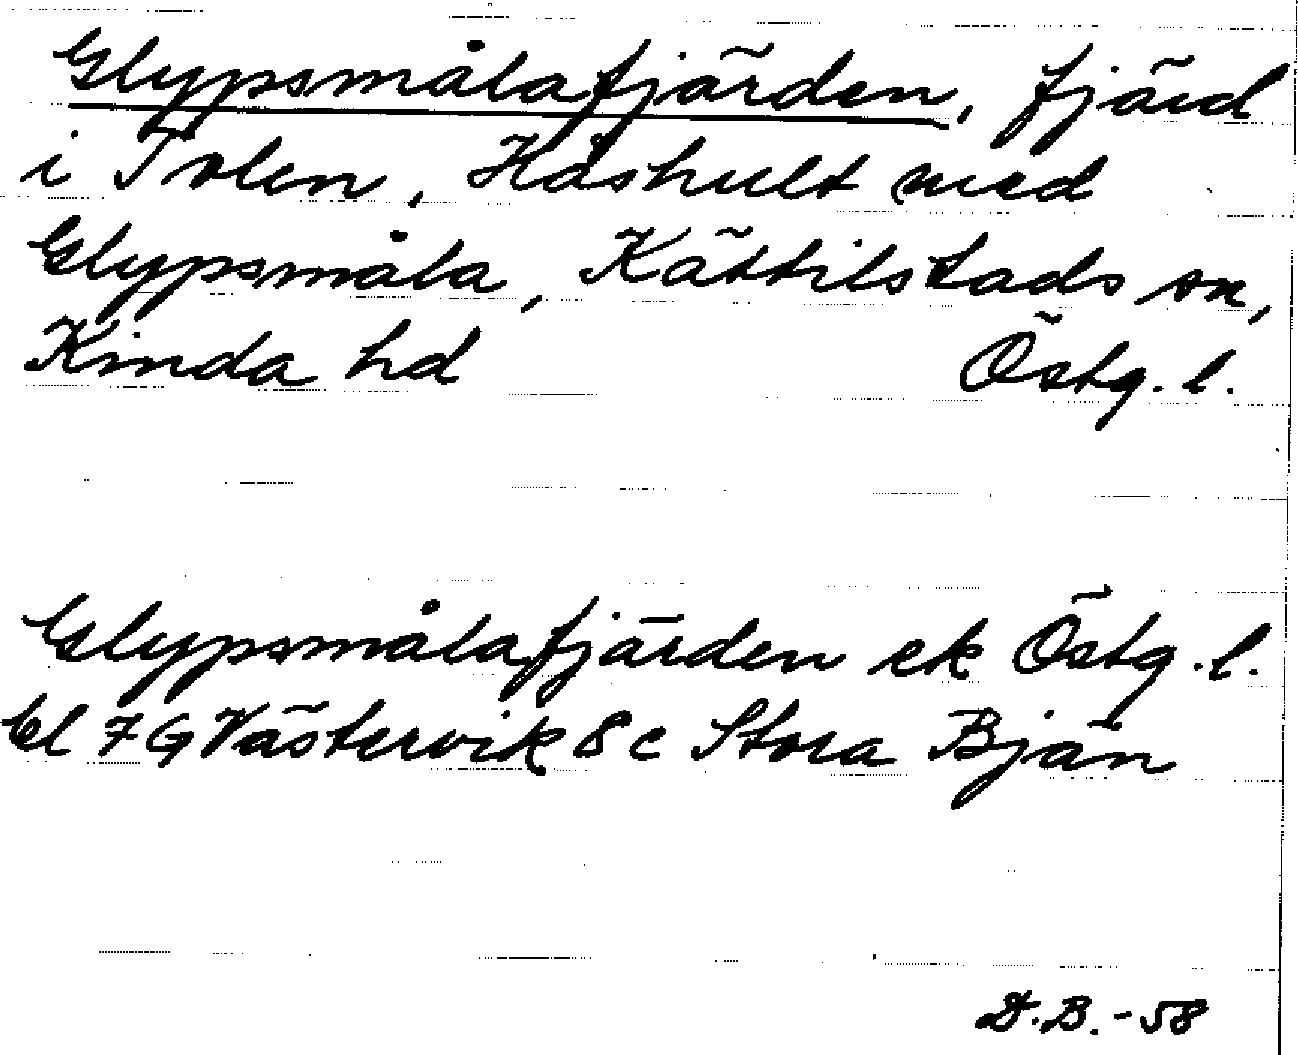 Glypsmålafjärden, fjärd
i Tolen, Håshult med
Glypsmåla, Kättilstads sn,
Kinda hd Östg. l.
Glypsmålafjärden ek Östg. l.
bl 7 G Västervik 8 c Stora Bjän
D.B. - 58